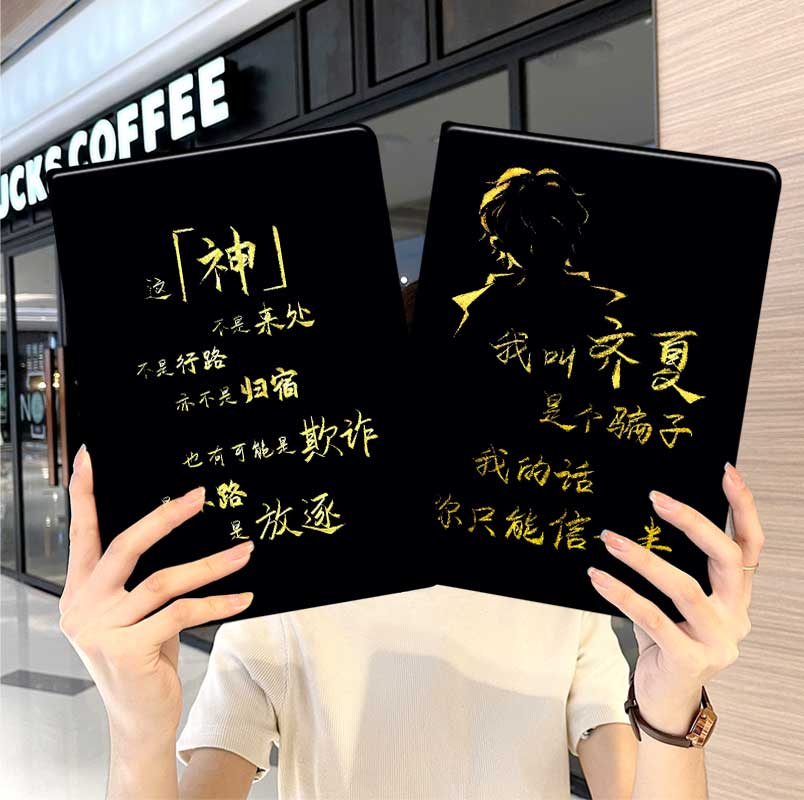 UCKS COFFEE
这「神」
不是来处
不是行路
亦不是归宿
也有可能是欺诈
路
是放逐
我叫齐夏
是个骗子
我的话
你只能信 半
NO